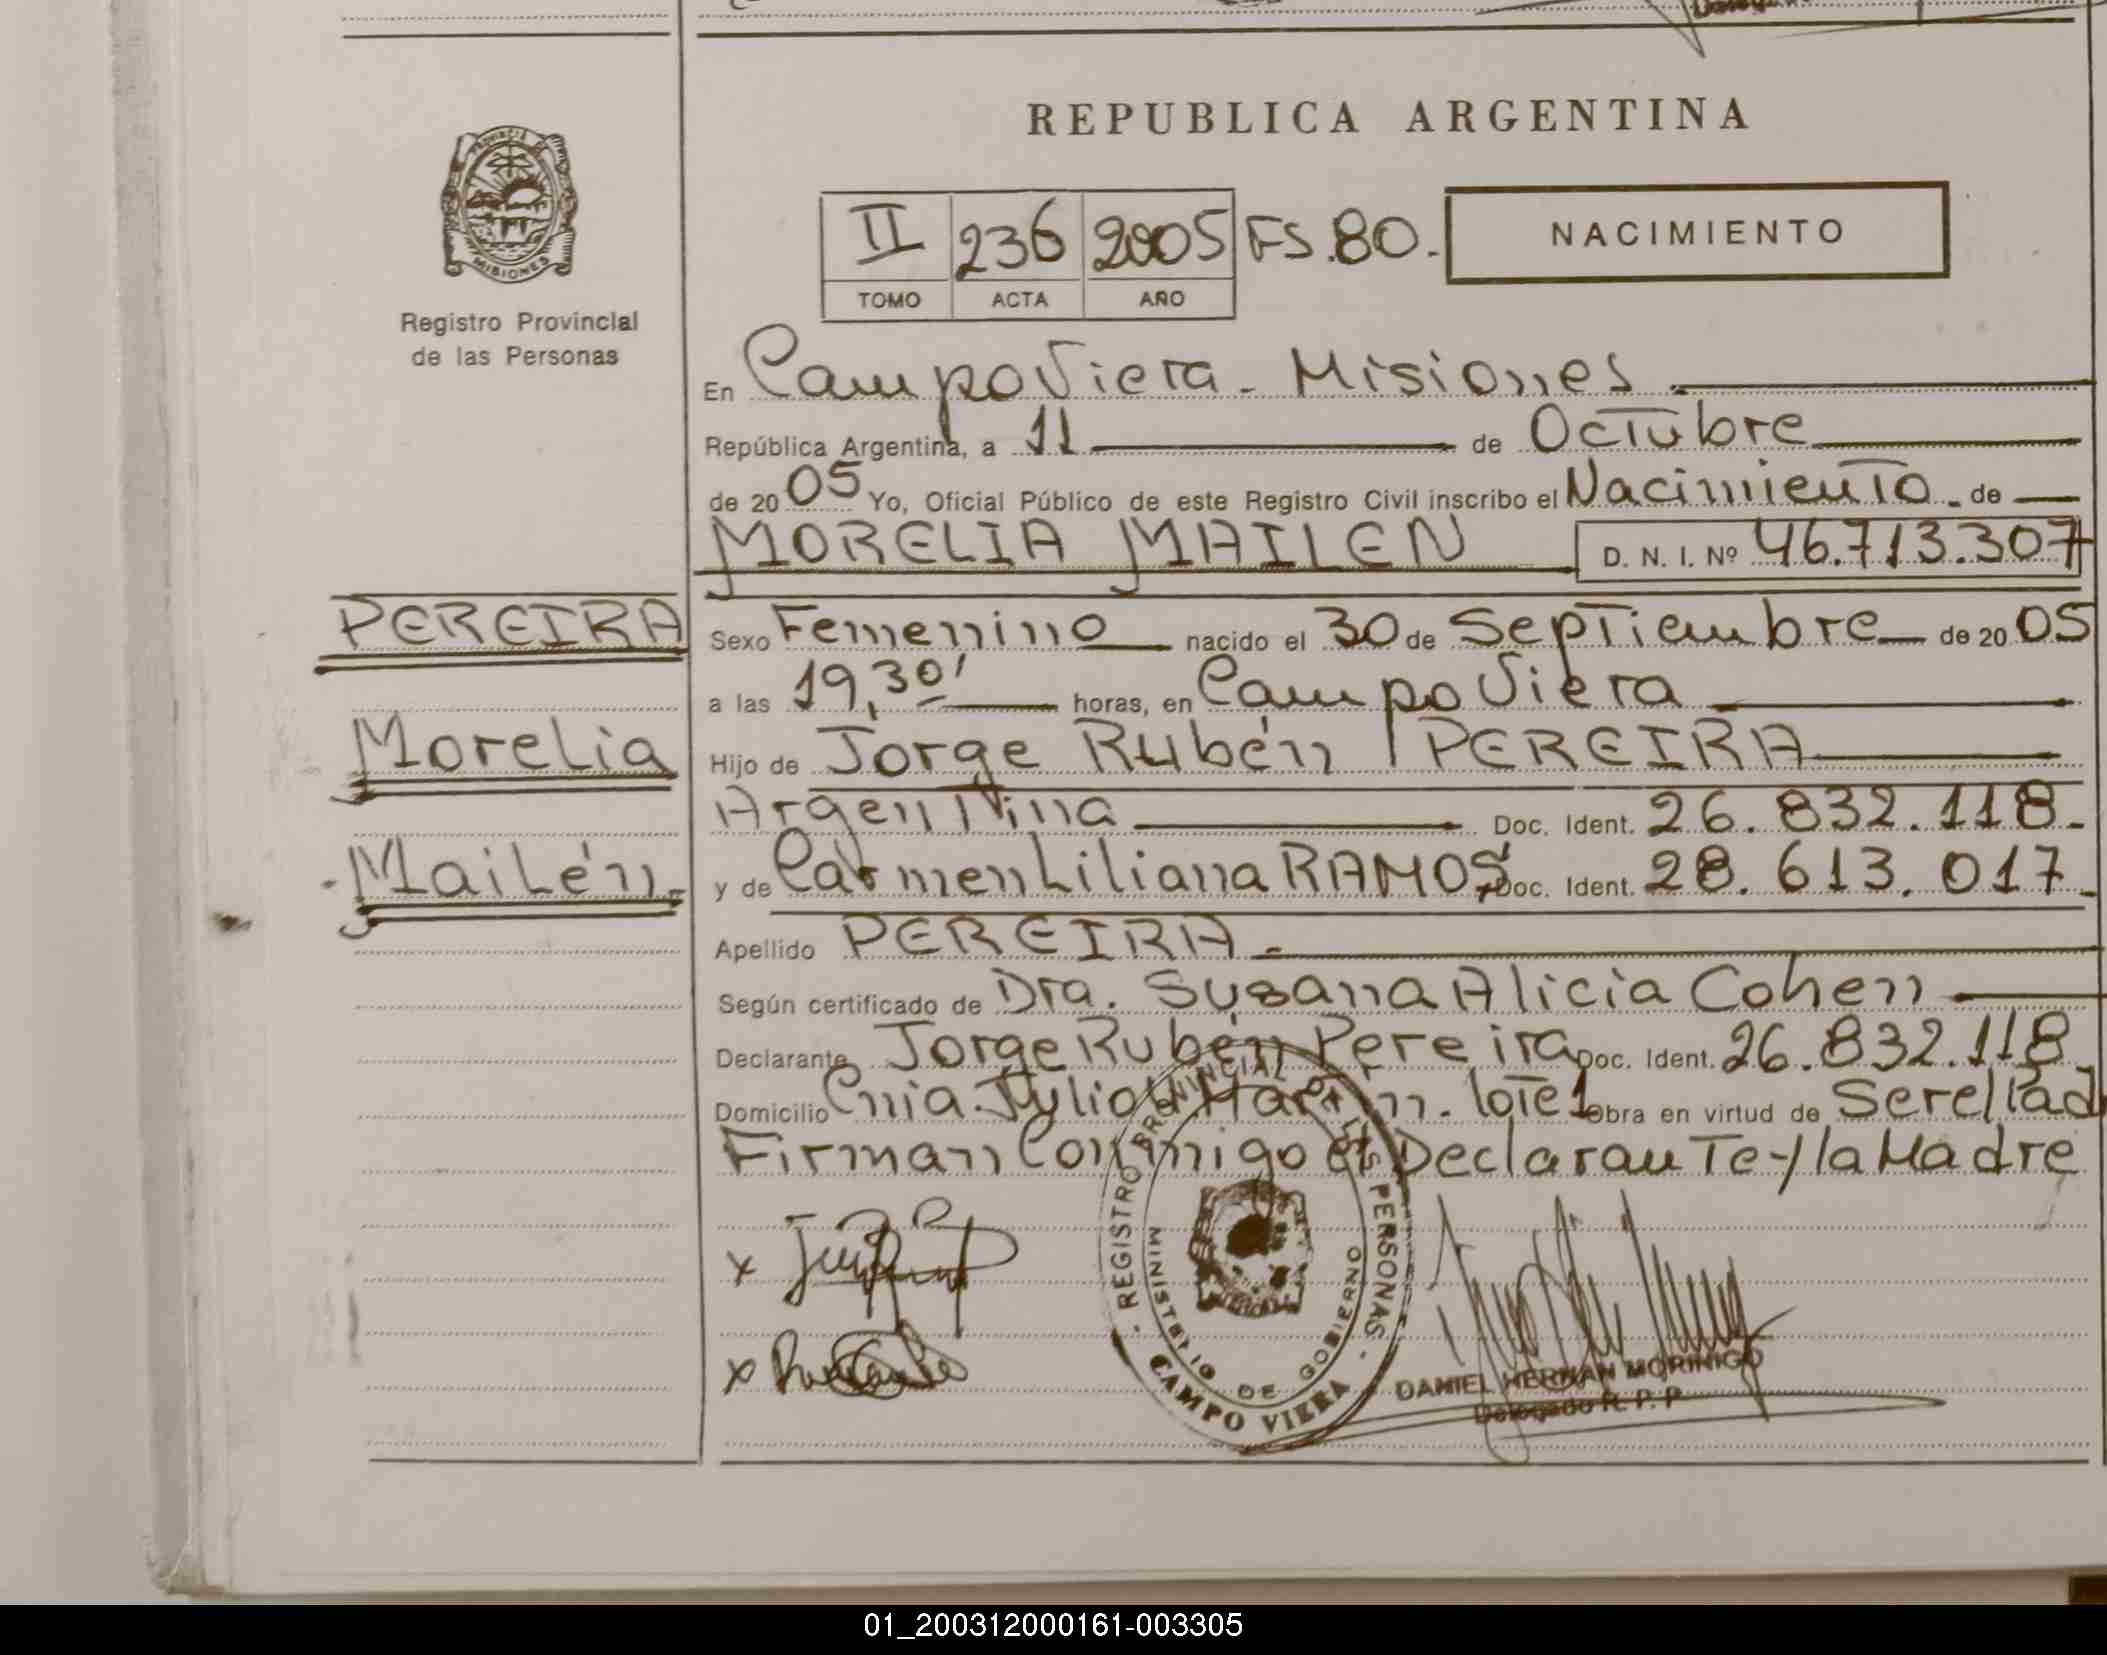 REPUBLICA ARGENTINA
PROVINCIA DE MISIONES
Registro Provincial
de las Personas
II 236 2005 FS.80.
TOMO ACTA AÑO
NACIMIENTO
En Campo Viera - Misiones
República Argentina, a 11 de Octubre
de 2005 Yo, Oficial Público de este Registro Civil inscribo el Nacimiento de
MORELIA MAILEN D. N. I. Nº 46.713.307
PEREIRA
Morelia
Mailén
Sexo Femenino nacido el 30 de Septiembre de 2005
a las 19,30' horas, en Campo Viera
Hijo de Jorge Rubén PEREIRA
Argentina Doc. Ident. 26.832.118.
y de Carmen Liliana RAMOS Doc. Ident. 28.613.017
Apellido PEREIRA.
Según certificado de Dra. Susana Alicia Cohen
Declarante Jorge Rubén Pereira Doc. Ident. 26.832.118
Domicilio Cnia. Martin. lote 1 Obra en virtud de Ser el Pad
Firman Conmigo el Declarante y la Madre
REGISTRO PROVINCIAL DE LAS PERSONAS
MINISTERIO DE GOBIERNO
CAMPO VIERA
DANIEL HERNAN MORINIGO
Delegado R. P. P
01_200312000161-003305